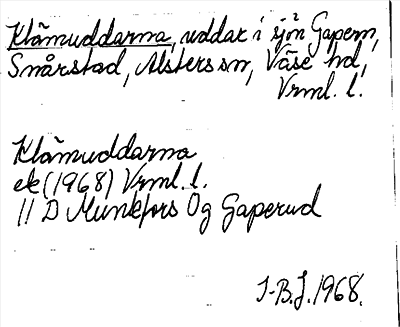 Klämuddarna, uddar i sjön Gapern,
Smårstad, Alsters sn, Väse hd,
Vrml. l.
Klämuddarna
ek (1968) Vrml. l.
11 D Munkfors Og Gaperud
I-B.J. 1968.